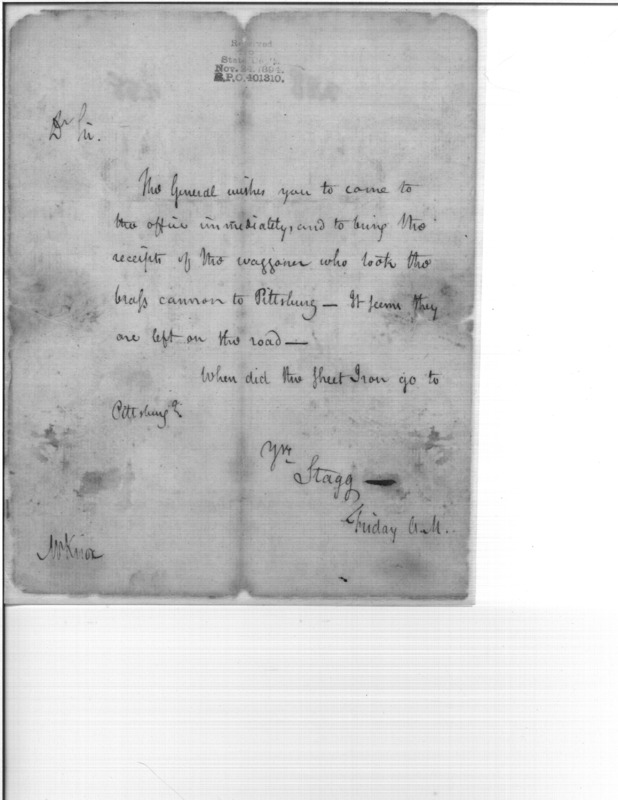 Received
State Dep't.
Nov. 1894.
R.P.O. 401310.
Dr Sir.
The General wishes you to come to
the office immediately, and to bring the
receipts of the waggoner who took the
brass cannon to Pittsburg — It seems they
are left on the road —
When did the Sheet Iron go to
Pittsburg?
Yrs
Stagg —
Friday A.M.
Mr Knox